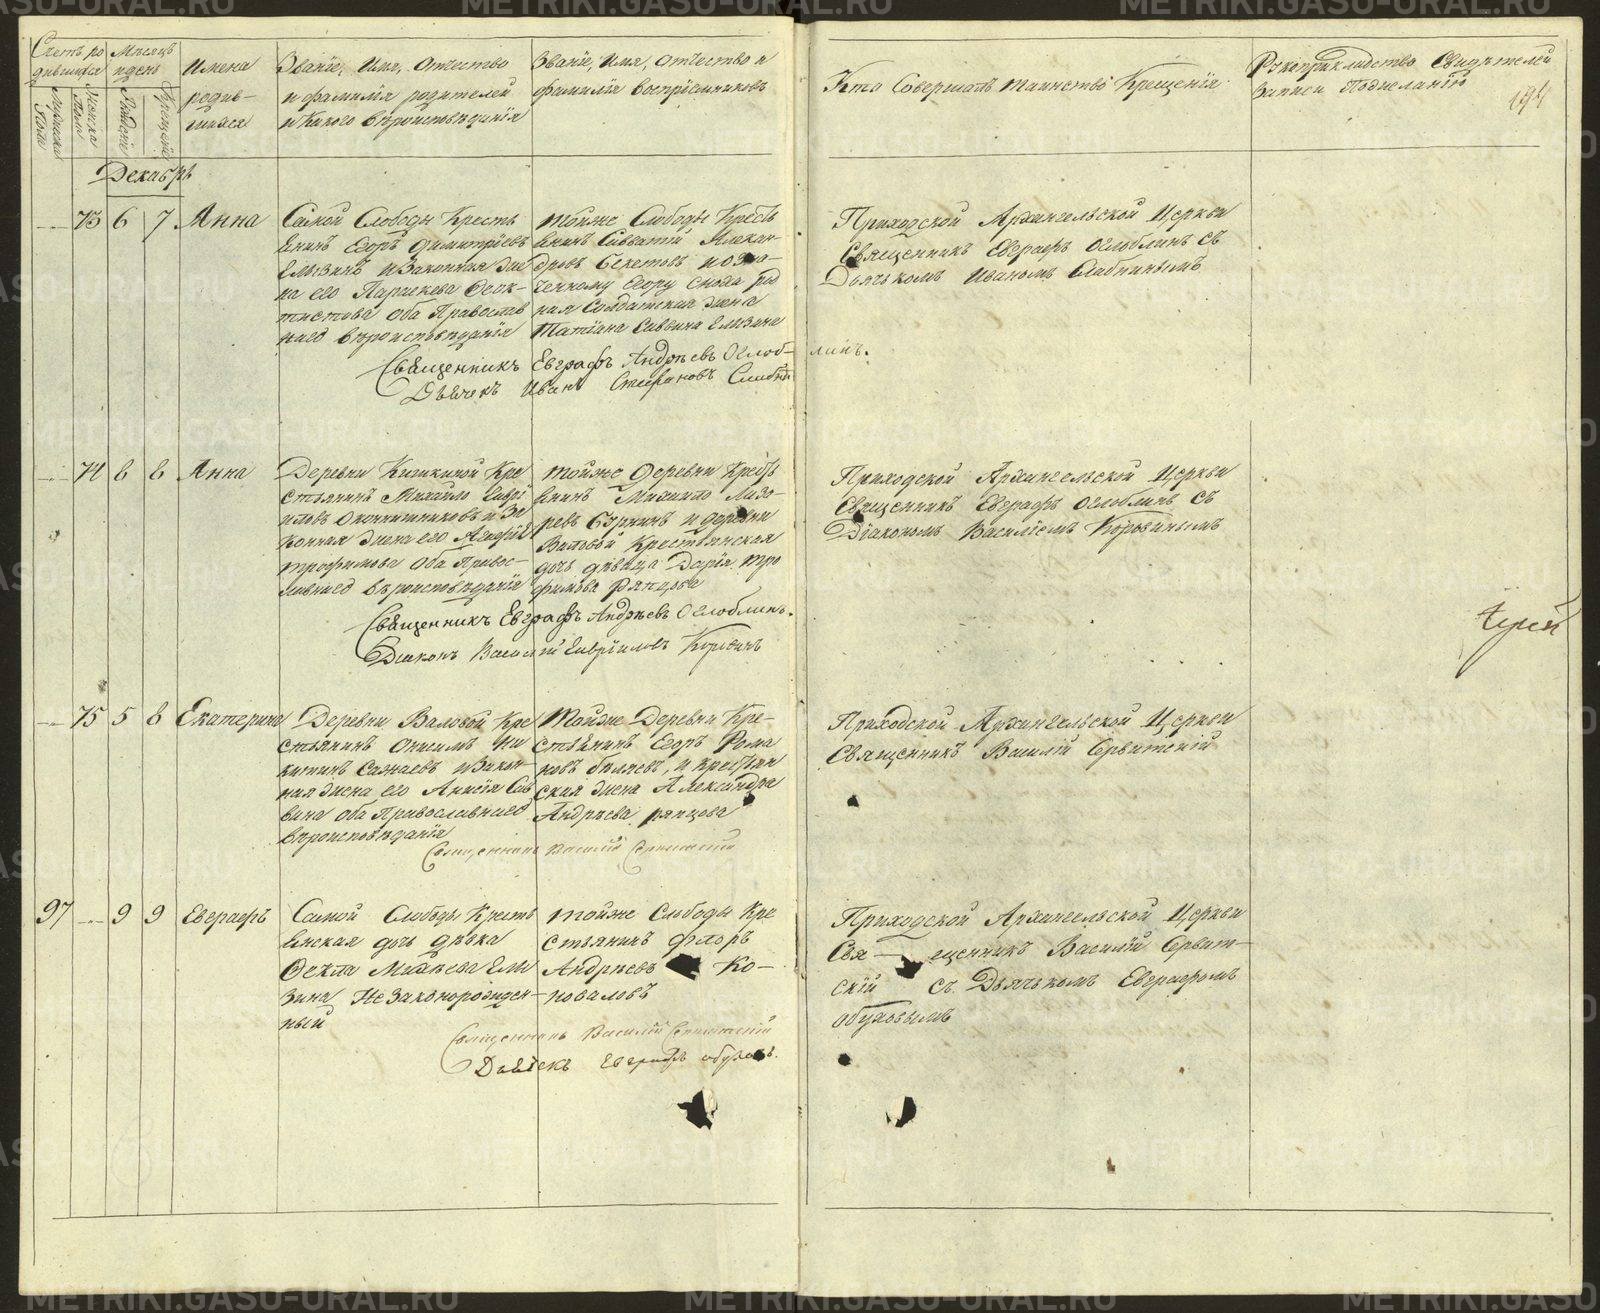 Счетъ ро
дившихся
Мужеска
Пола
Женска
Пола
Мѣсяцъ
и день
Рожденіе
Крещеніе
Имена
родив-
шихся
Званіе, Имя, Отчество
и фамилія родителей
и Какого вѣроисповѣданія
Званіе, Имя, Отчество и
фамилія Воспріемниковъ
Кто Совершалъ таинство Крещенія
Рукоприкладство Свидѣтелей
Записи По желанію
194
Декабрь
73 6 7 Анна
Самой Слободы Кресть
янинъ Егоръ Димитріевъ
Елизинъ и Законная Же
на его Параскева Феок-
тистова Оба Православ
наго вѣроисповѣданія
тойже Слободы Кресть
янинъ Савватій Алексан-
дровъ Бекетовъ и озна-
ченному Егору сноха род
ная Солдатская жена
Татіана Саввина Елизина
Приходской Архангельской Церкви
Священникъ Евграфъ Оглоблинъ съ
Дьячькомъ Иваномъ Слабнинымъ
Священникъ Евграфъ Андрѣевъ Оглоб-линъ.
Дьячекъ Иванъ Стефановъ
74 6 8 Анна
Деревни Кишкиной Кре
стьянинъ Михайло Гаврі
иловъ Оконнишниковъ и За
конная жена его
трофимова Оба Правос-
лавнаго вѣроисповѣданія
тойже Деревни Кресть
янинъ Михайло Лаза-
ревъ и деревни
Валовой Крестьянская
дочь дѣвица Дарія тро
фимова Ряпцова
Приходской Архангельской Церкви
Священникъ Евграфъ Оглоблинъ съ
Діакономъ Василіемъ Коровинымъ
Священникъ Евграфъ Андрѣевъ Оглоблинъ.
Діаконъ Василій Гавріиловъ Коровинъ
75 5 8 Екатерина
Деревни Валовой Кре
стьянинъ Онисимъ Ни
китинъ Сажаевъ и Закон-
ная жена его Анисія Сав
вина оба Православнаго
вѣроисповѣданія
тойже Деревни Кре-
стьянинъ Егоръ Рома
новъ Бѣляевъ, и крестьян
ская жена Александра
Андрѣева ряпцова
Приходской Архангельской Церкви
Священникъ Василій Сервитскій
Священникъ Василій Сервитскій
97 9 9 Евграфъ
Самой Слободы Кресть
янская дочь дѣвка
Фекла Михѣева Ели
зина Незаконорожден-
ный
тойже Слободы Кре
стьянинъ Флоръ
Андрѣевъ Ко-
новаловъ
Приходской Архангельской Церкви
Свя-щенникъ Василій Сервит-
скій съ Дьячькомъ Евграфомъ
обуховымъ
Священникъ Василій Сервитскій
Дьячекъ Евграфъ обуховъ.
METRIKI.GASU-URAL.RU